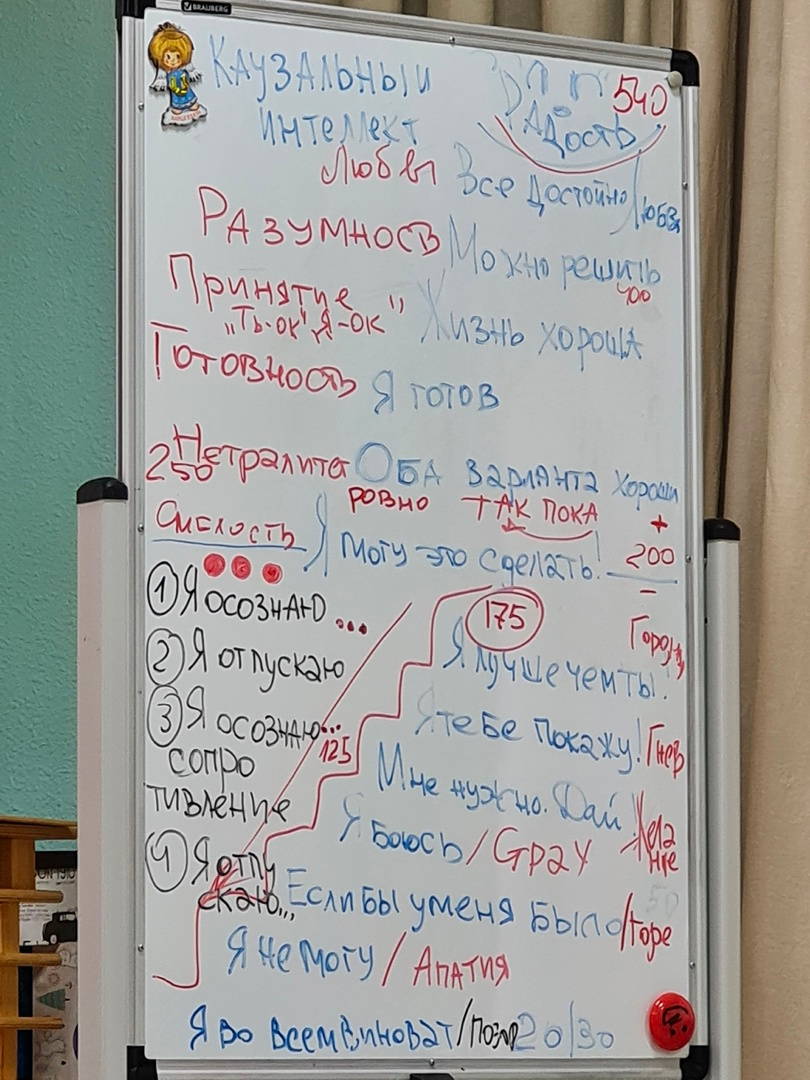 BRAUBERG
Каузальный
интеллект
Радость 540
Любвь Все достойно Любви
Разумность Можно решить
400
Принятие
„Ты-ок" „Я-ок" Жизнь хороша
Готовность Я готов
250 Нетралитет Оба варианта хороши
ровно так пока +
Смелость Я могу это сделать! 200
–
① Я осознаю ...
175
Горд
② Я отпускаю
Я лучше чем ты!
③ Я осознаю...
сопро
тивление
Я тебе покажу! Гнев
125
Мне нужно. Дай! Жела
ние
Я боюсь / Страх
④ Я отпу
скаю...
Если бы у меня было / Горе
50
Я не могу / Апатия
Я во всем виноват / Позор 20/30